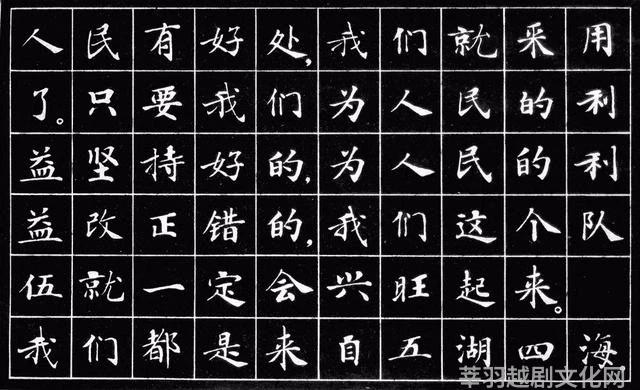 人民有好处，我们就采用
了。只要我们为人民的利
益坚持好的，为人民的利
益改正错的，我们这个队
伍就一定会兴旺起来。
我们都是来自五湖四海
莘羽越剧文化网